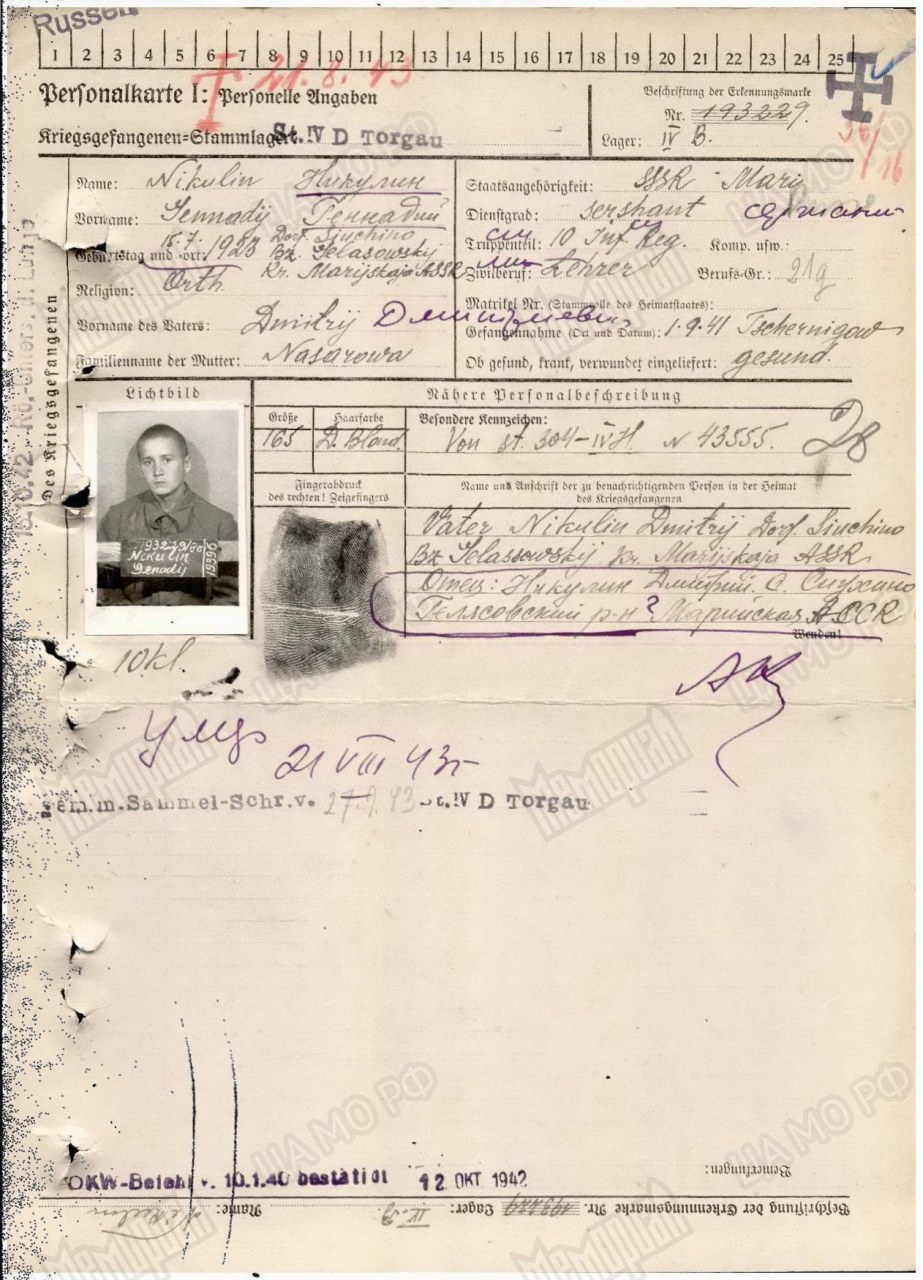 Russen
1 2 3 4 5 6 7 8 9 10 11 12 13 14 15 16 17 18 19 20 21 22 23 24 25
21.8.43
Personalkarte I: Personelle Angaben
Kriegsgefangenen-Stammlager: St. IV D Torgau
Beschriftung der Erkennungsmarke
Nr. 193229.
Lager: IV B.
Des Kriegsgefangenen
Name: Nikulin Никулин
Vorname: Gennadij Геннадий
Geburtstag und -ort: 15.7. 1923 Dorf. Siuchino
Bz. Selasowskj
Kr. Marijskaja ASSR
Religion: Orth
Vorname des Vaters: Dmitrij Дмитриевич
Familienname der Mutter: Nasarowa
Staatsangehörigkeit: SSSR Mary
Dienstgrad: sershant сержант
Truppenteil: 10 Inf. Reg. Komp. usw.:
Zivilberuf: Lehrer Berufs-Gr.: 21g
Matrikel Nr. (Stammrolle des Heimatstaates):
Gefangennahme (Ort und Datum): 1.9.41 Tschernigow
Ob gesund, krank, verwundet eingeliefert: gesund.
Lichtbild
Nähere Personalbeschreibung
Größe Haarfarbe Besondere Kennzeichen:
165 D. Blond Von St. 304-IV H N 43555. 28
Fingerabdruck
des rechten! Zeigefingers
Name und Anschrift der zu benachrichtigenden Person in der Heimat
des Kriegsgefangenen
Vater Nikulin Dmitrij Dorf. Siuchino
Bz Selassowskij Kr. Marijskaja ASSR
Отец: Никулин Дмитрий. С. Сиухино
р-н? Марийская АССR
Wenden!
Nikulin
Genady
10 kl.
умер
21 VIII 43 г
m. Sammel-Schr. v. 27.9.43 St. IV D Torgau
OKW-Befehl v. 10.1.40 bestätigt 12 OKT 1942
Bemerkungen:
Beschriftung der Erkennungsmarke Nr. 193229 Lager: IV B Name: Nikulin
ЦАМО РФ
Мемориал